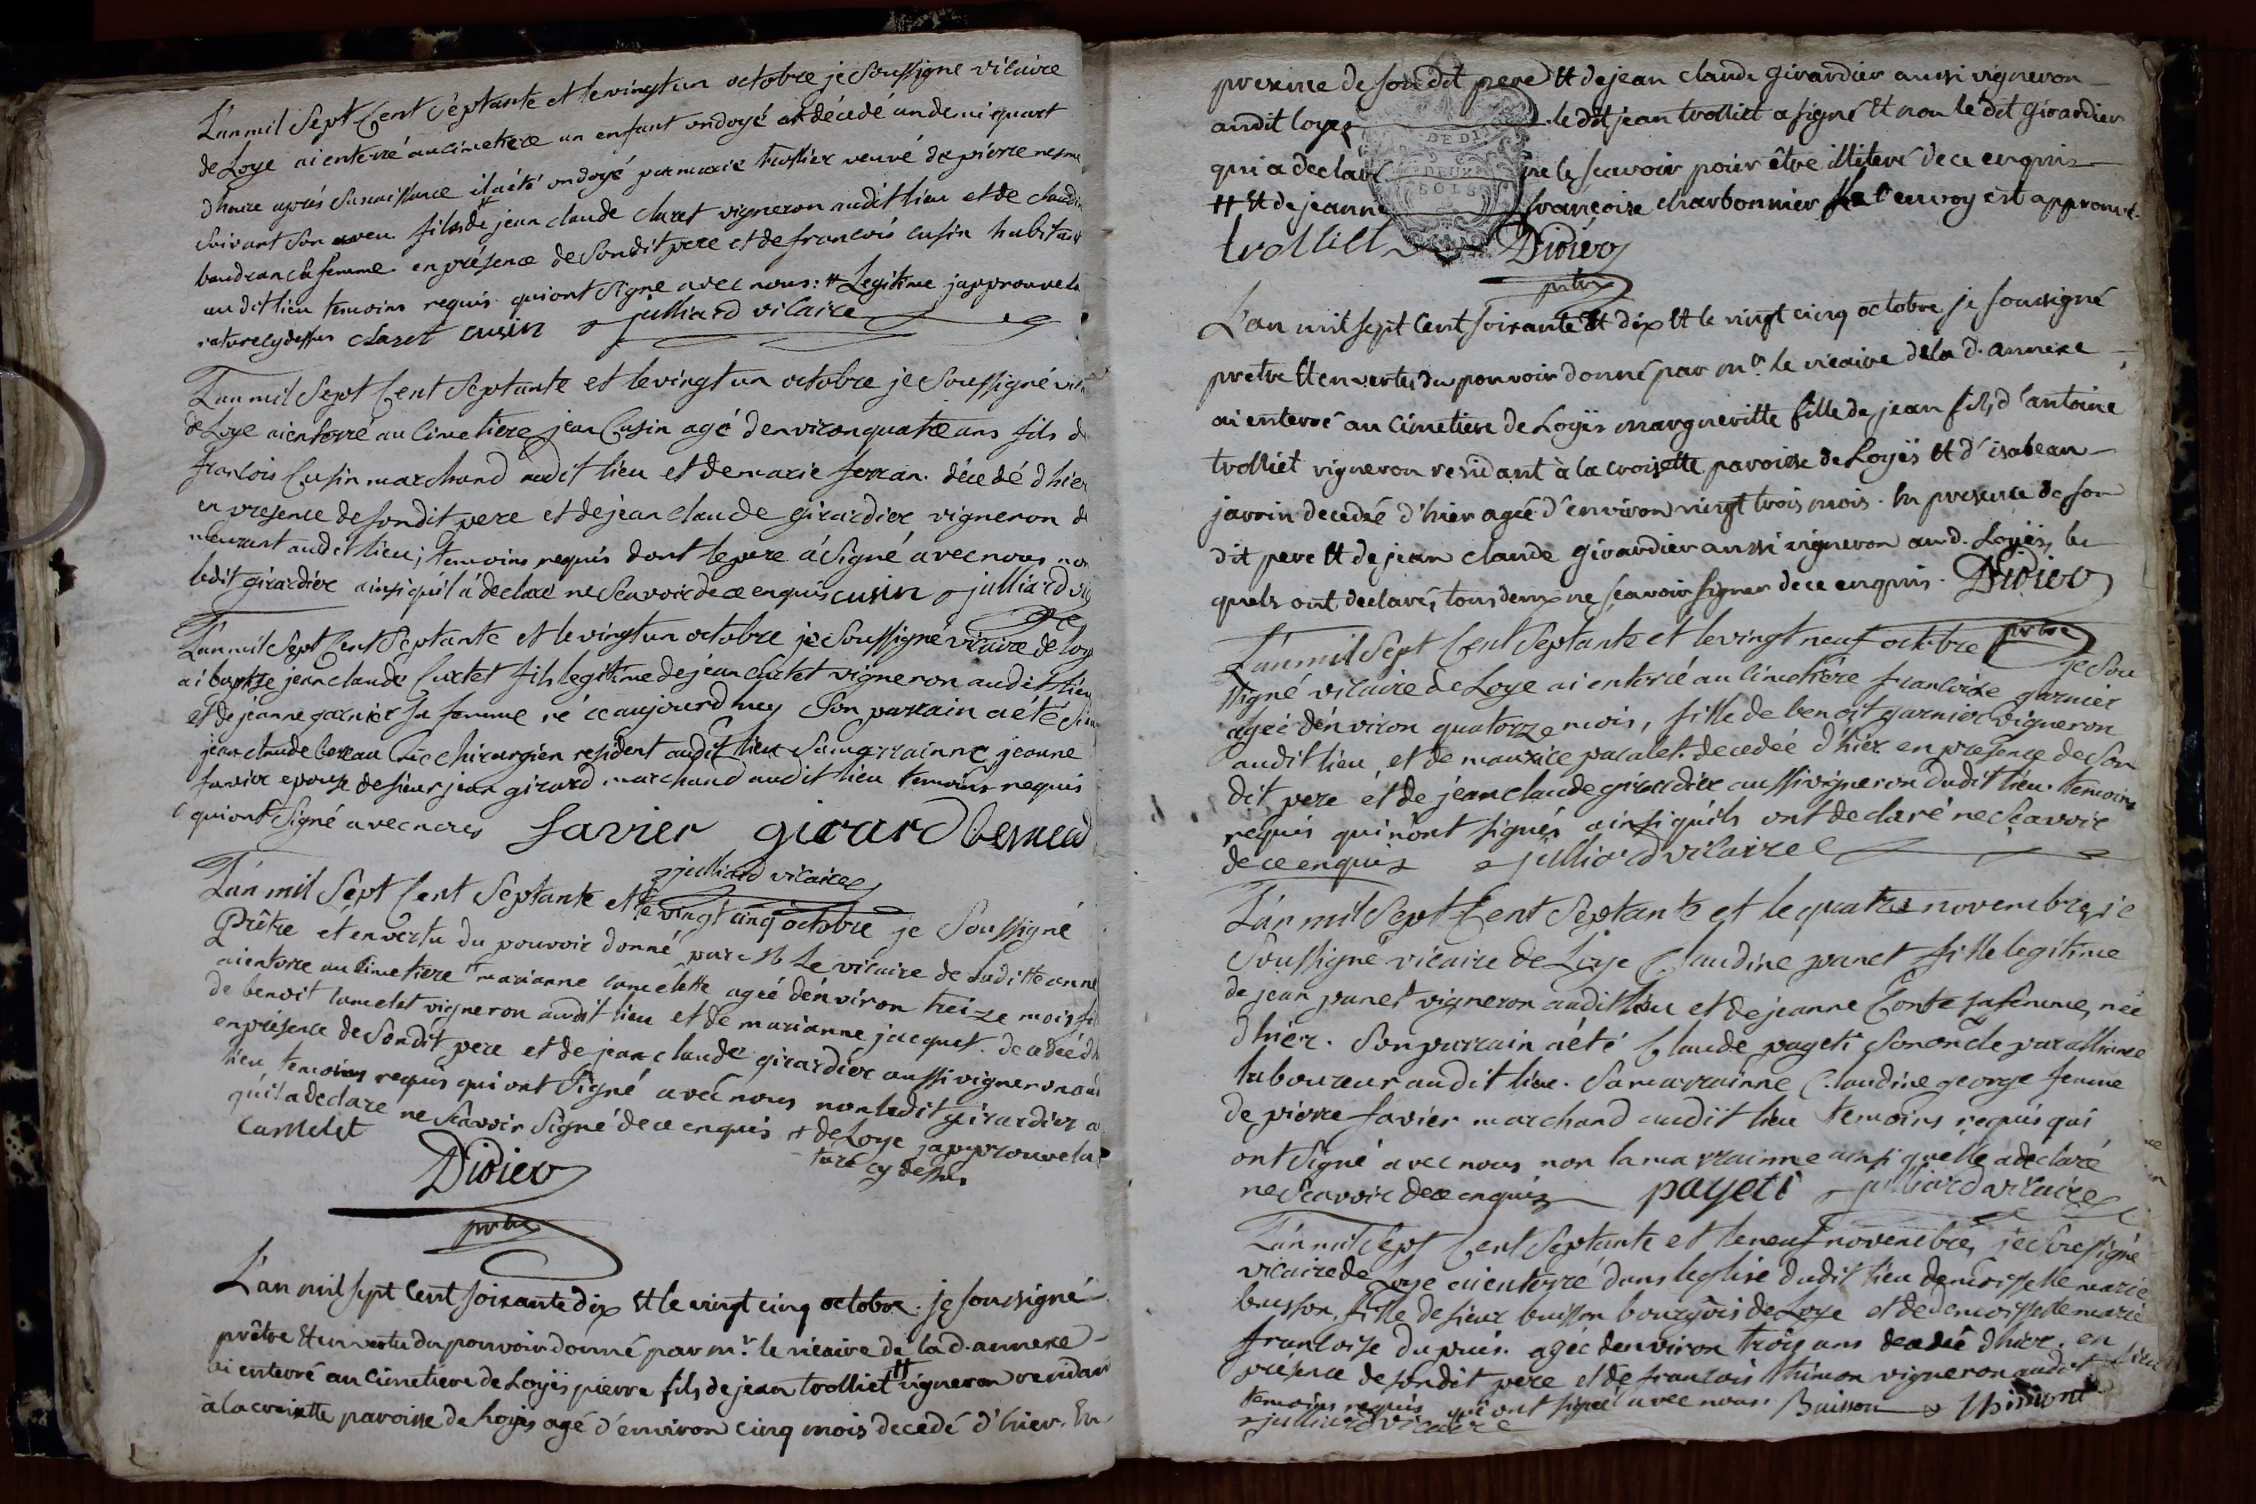 L'an mil Sept Cent Septante et le vingt un octobre je Soussigné vicaire
de Loye ai enterré au cimetiere un enfant ondoyé et décédé un demi quart
d'heure aprés sa naissance il a été ondoyé par marie trollier veuve de pierre
suivant son aveu fils de # jean claude claret vigneron audit lieu et de
baudran sa femme en présence de Sondit pere et de francois cusin habitant
audit lieu temoins requis qui ont Signé avec nous: # Legitime japprouve la
rature cy dessus claret cusin julliard vicaire
L'an mil Sept Cent Septante et le vingt un octobre je Soussigné
de Loye ai enterré au Cimetiere jean Cusin agé d'environ quatre ans fils d
francois Cusin marchand audit lieu et de marie ferran. décedé d'hier
en presence de sondit pere et de jean claude girardier vigneron d
meurant audit lieu; temoins requis dont le pere á Signé avec nous non
ledit girardier ainsi qu'il á declaré ne Scavoir de ce enquis cusin julliard vic
L'an mil Sept Cent Septante et le vingt un octobre je Soussigné vicaire de loye
ai baptise jean claude Curtet fils legitime de jean curtet vigneron audit lieu
et de jeanne garnier sa femme né ce aujourd huy Son parrain a été
jean claude berneau chirurgien resident audit lieu Sa marrainne jeanne
favier epouse de sieur jean girard marchand audit lieu temoins requis
qui ont Signé avec nous favier girard
julliard vicaire
L'an mil Sept Cent Septante et le vingt cinq octobre je Soussigné
Prêtre et en vertu du pouvoir donné par Mr Le vicaire de laditte anne
ai enterre au Cimetiere # marianne camelette agée d'environ treize mois
de benoit camelet vigneron audit lieu et de marianne jacquet. decedée d'h
en présence de Sondit pere et de jean claude girardier aussi vigneron aud
lieu temoins requis qui ont Signé avec nous non ledit girardier
qu'il a declaré ne Scavoir Signé de ce enquis # de Loye japprouve la
Camelet ture cy dessus
Didier
prtre
L'an mil sept Cent soixante dix et le vingt cinq octobre. je soussigné
prêtre et en vertu du pouvoir donné par mr. le vicaire de la d. annexe
ai enterré au Cimetiere de Loyës pierre fils de jean trolliet # vigneron residant
à la croisette paroisse de Loyës agé d'environ cinq mois decedé d'hier. En
presence de son dit pere et de jean claude girardier aussi vigneron
audit loyes le dit jean trolliet a signé et non le dit girardier
qui a declaré ne le scavoir pour être illiteré de ce enquis
# et de jeanne françoise charbonnier le renvoy est approuvé.
trolliet Didier
prtre
L'an mil sept Cent soixante et dix et le vingt cinq octobre je soussigné
pretre et en vertu du pouvoir donné par mr. le vicaire de la d. annexe
ai enterré au Cimetiere de Loyës margueritte fille de jean fils d'antoine
trolliet vigneron residant à la croisette paroisse de Loyës et d'isabeau
javrin decedée d'hier agée d'environ vingt trois mois. En presence de son
dit pere et de jean claude girardier aussi vigneron aud. Loyës, les
quels ont declarés tous deux ne scavoir signer de ce enquis. Didier
prtre
L'an mil Sept Cent Septante et le vingt neuf octobre je Sou
ssigné vicaire de Loye ai enterré au Cimetiére francoise garnier
agée d'environ quatorze mois, fille de benoit garnier vigneron
audit lieu, et de maurice pacalet. decedée d'hier en presence de Son
dit pere et de jean claude girardier aussi vigneron dudit lieu. temoins
requis qui n'ont signés ainsi qu'ils ont declaré ne Scavoir
de ce enquis julliard vicaire
L'an mil Sept Cent Septante et le quatre novembre, je
Soussigné vicaire de Loye Claudine panet fille legitime
de jean panet vigneron audit lieu et de jeanne Conte sa femme, née
d'hier. Son parrain a été Claude payeti Son oncle par alliance
laboureur audit lieu. Sa marrainne Claudine george femme
de pierre favier marchand audit lieu temoins requis qui
ont Signé avec nous non la marrainne ainsi qu'elle a declaré
ne Scavoir de ce enquis payeti julliard vicaire
L'an mil Sept Cent Septante et le neuf novembre, je Soussigné
vicaire de Loye ai enterré dans l'eglise dudit lieu demoisselle marie
buisson, fille de sieur buisson bourgois de Loye et de demoisselle marie
francoise dupuis. agée d'environ trois ans decedée d'hier. en
présence de sondit pere et de francois thimon vigneron audit lieu
temoins requis qui ont signé avec nous. Buisson thimont
julliard vicaire